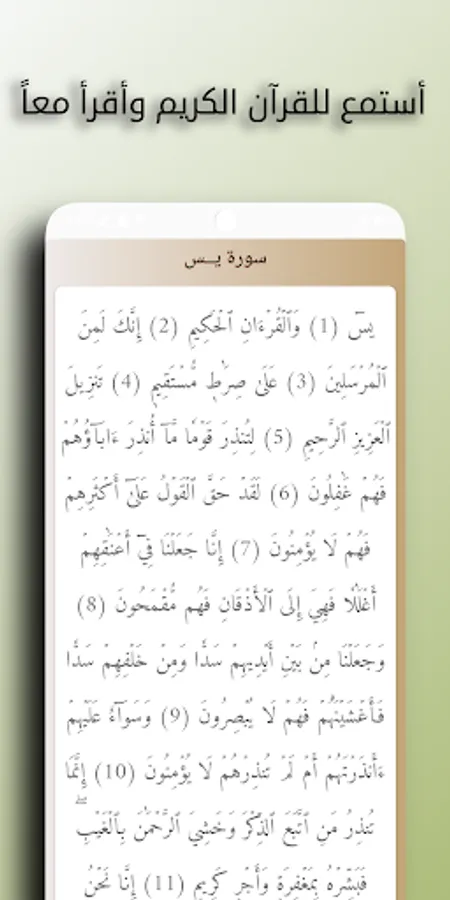 أستمع للقرآن الكريم وأقرأ معاً
سورة يــس
يسٓ (1) وَٱلْقُرْءَانِ ٱلْحَكِيمِ (2) إِنَّكَ لَمِنَ
ٱلْمُرْسَلِينَ (3) عَلَىٰ صِرَٰطٍ مُّسْتَقِيمٍ (4) تَنزِيلَ
ٱلْعَزِيزِ ٱلرَّحِيمِ (5) لِتُنذِرَ قَوْمًا مَّآ أُنذِرَ ءَابَآؤُهُمْ
فَهُمْ غَٰفِلُونَ (6) لَقَدْ حَقَّ ٱلْقَوْلُ عَلَىٰٓ أَكْثَرِهِمْ
فَهُمْ لَا يُؤْمِنُونَ (7) إِنَّا جَعَلْنَا فِىٓ أَعْنَٰقِهِمْ
أَغْلَٰلًا فَهِىَ إِلَى ٱلْأَذْقَانِ فَهُم مُّقْمَحُونَ (8)
وَجَعَلْنَا مِنۢ بَيْنِ أَيْدِيهِمْ سَدًّا وَمِنْ خَلْفِهِمْ سَدًّا
فَأَغْشَيْنَٰهُمْ فَهُمْ لَا يُبْصِرُونَ (9) وَسَوَآءٌ عَلَيْهِمْ
ءَأَنذَرْتَهُمْ أَمْ لَمْ تُنذِرْهُمْ لَا يُؤْمِنُونَ (10) إِنَّمَا
تُنذِرُ مَنِ ٱتَّبَعَ ٱلذِّكْرَ وَخَشِىَ ٱلرَّحْمَٰنَ بِٱلْغَيْبِ ۖ
فَبَشِّرْهُ بِمَغْفِرَةٍ وَأَجْرٍ كَرِيمٍ (11) إِنَّا نَحْنُ